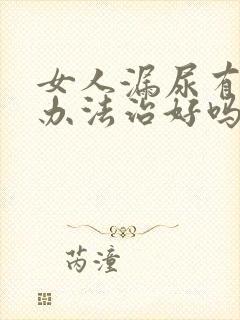 女人漏尿有
办法治好吗
芮潼